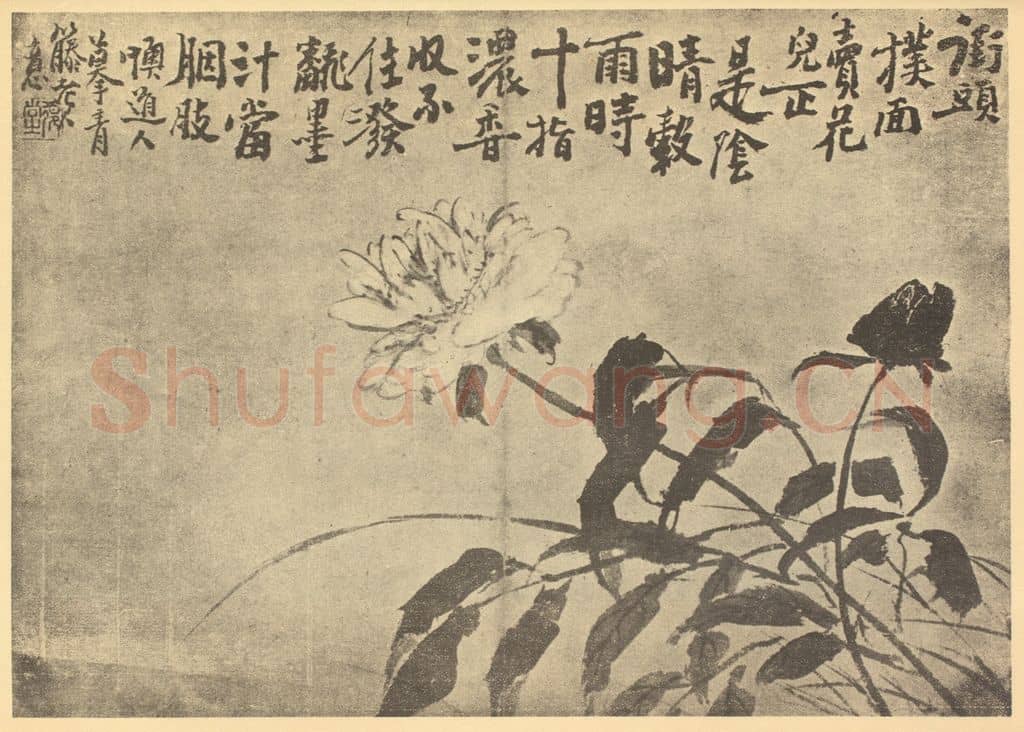 街頭
撲面
賣花
兒正
是陰
晴穀
雨時
十指
濃香
收不
住潑
飜墨
汁當
胭肢
懊道人
摹青
籐老
意
Shufawang.CN